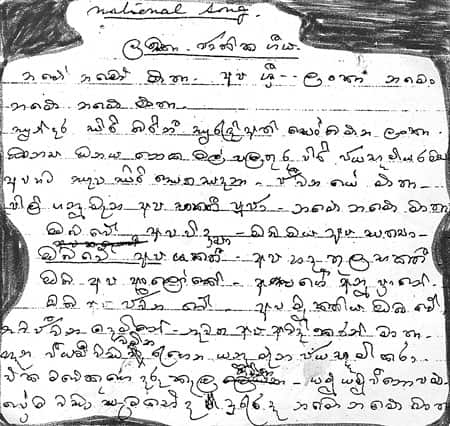 national song.
ලංකා - ජාතික ගීය.
නමෝ නමෝ මාතා - අප ශ්‍රී - ලංකා නමෝ
නමෝ නමෝ මාතා -
සුන්දර සිරි බරිනි සුරැඳි අති සෝභමාන ලංකා -
ධාන්‍ය ධනය නෙක මල් පලතුරු පිරි ජයභූමිය රම්‍ය
අපහට සැප සිරි සෙත සදනා - ජීවනයේ මාතා -
පිළිගනු මැන අප භක්ති පූජා - නමෝ නමෝ මාතා
ඔබ වේ අප විද්‍යා - ඔබ මය අප සත්‍යා -
ඔබ වේ අප ශක්ති - අප හද තුළ භක්ති
ඔබ අප ආලෝකේ - අපගේ අනුප්‍රාණේ -
ඔබ අප ජීවන වේ - අප මුක්තිය ඔබ වේ
නව ජීවන දෙමිනේ - අප අවදි කරන් මාතා -
ඥාන වීර්ය රැගෙන යනු මැන ජය භූමි කරා -
එක මවකගෙ දරු කැල බැවිනා - යමු යමු වී නොපමා
ප්‍රේම වඩා සැම භේද දුරැරද නමෝ නමෝ මාතා